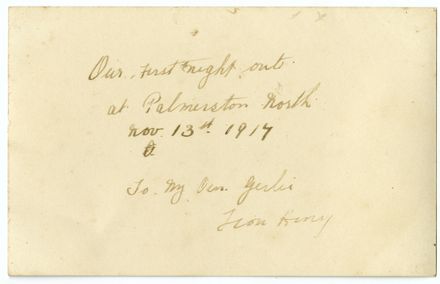 Our first night out
at Palmerston North
Nov. 13th 1917
To My Own Gerlie
From Henry